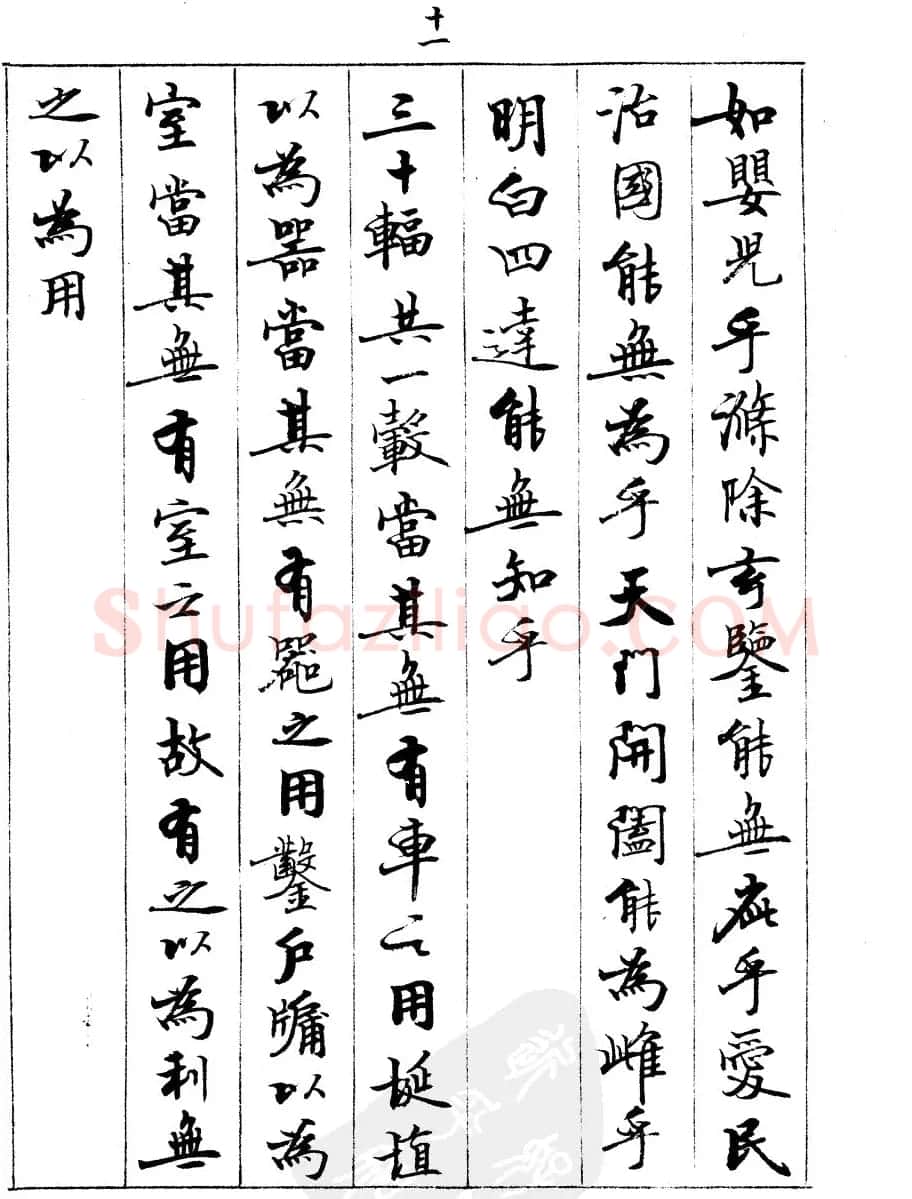 十一
如嬰兒乎滌除玄鑒能無疵乎愛民
治國能無為乎天門開闔能為雌乎
明白四達能無知乎
三十輻共一轂當其無有車之用埏埴
以為器當其無有器之用鑿戶牖以為
室當其無有室之用故有之以為利無
之以為用
Shufaziliao.COM